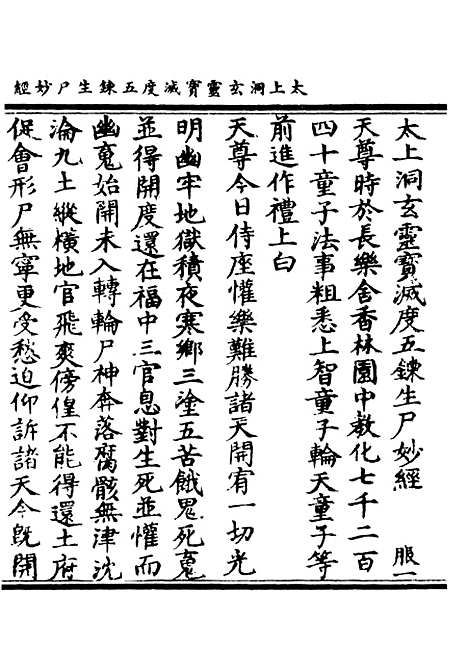 太上洞玄靈寳滅度五鍊生尸妙經
太上洞玄靈寳滅度五鍊生尸妙經　服一
天尊時於長樂舍香林園中教化七千二百
四十童子法事粗悉上智童子輪天童子等
前進作禮上白
天尊今日侍座懽樂難勝諸天開宥一切光
明幽牢地獄積夜寒鄉三塗五苦餓鬼死䰟
並得開度還在福中三官息對生死並懽而
幽䰟始開未入轉輪尸神奔落腐骸無津沈
淪九土縱橫地官飛爽傍偟不能得還土府
促會形尸無寧更受愁迫仰訴諸天今旣開